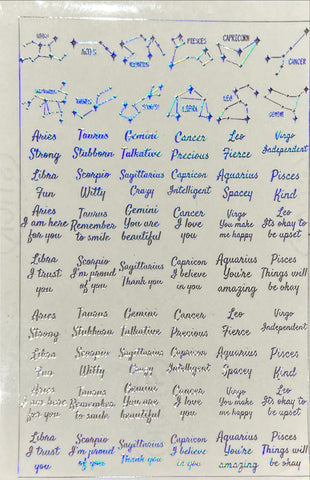 VIRGO ARIES PISCES CAPRICORN CANCER
TAURUS LIBRA LEO GEMINI
Aries Taurus Gemini Cancer Leo Virgo
Strong Stubborn Talkative Precious Fierce Independent
Libra Scorpio Sagittarius Capricorn Aquarius Pisces
Fun Witty Crazy Intelligent Spacey Kind
Aries Taurus Gemini Cancer Virgo Leo
I am here Remember You are I love You make It's okay to
for you to smile beautiful you me happy be upset
Libra Scorpio Sagittarius Capricorn Aquarius Pisces
I trust I'm proud Thank you I believe You're Things will
you of you in you amazing be okay
Aries Taurus Gemini Cancer Leo Virgo
Strong Stubborn Talkative Precious Fierce Independent
Libra Scorpio Sagittarius Capricorn Aquarius Pisces
Fun Witty Crazy Intelligent Spacey Kind
Aries Taurus Gemini Cancer Virgo Leo
I am here Remember You are I love You make It's okay to
for you to smile beautiful you me happy be upset
Libra Scorpio Sagittarius Capricorn Aquarius Pisces
I trust I'm proud Thank you I believe You're Things will
you of you in you amazing be okay